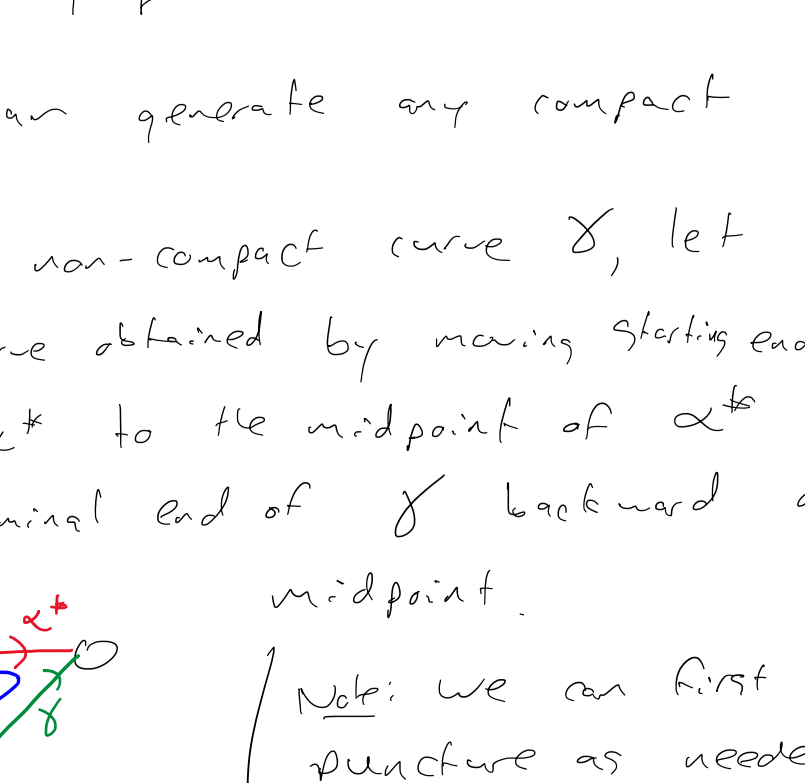 generate any compact
non-compact curve γ, let
obtained by moving starting end
* to the midpoint of α*
minal end of γ backward
midpoint.
α*
γ
Note: we can first
puncture as neede